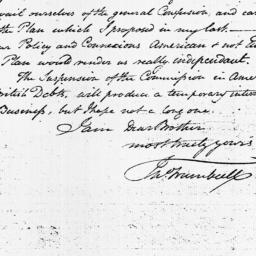 avail ourselves of the general Confusion, and car
the Plan which I proposed in my last.—
our Policy and Connexions American & not Eu
Plan would render us really independant.
The Suspension of the Commission in Amer
British Debts, will produce a temporary inter
Business, but I hope not a long one.
I am Dear Brother
most truly yours
Jno Trumbull